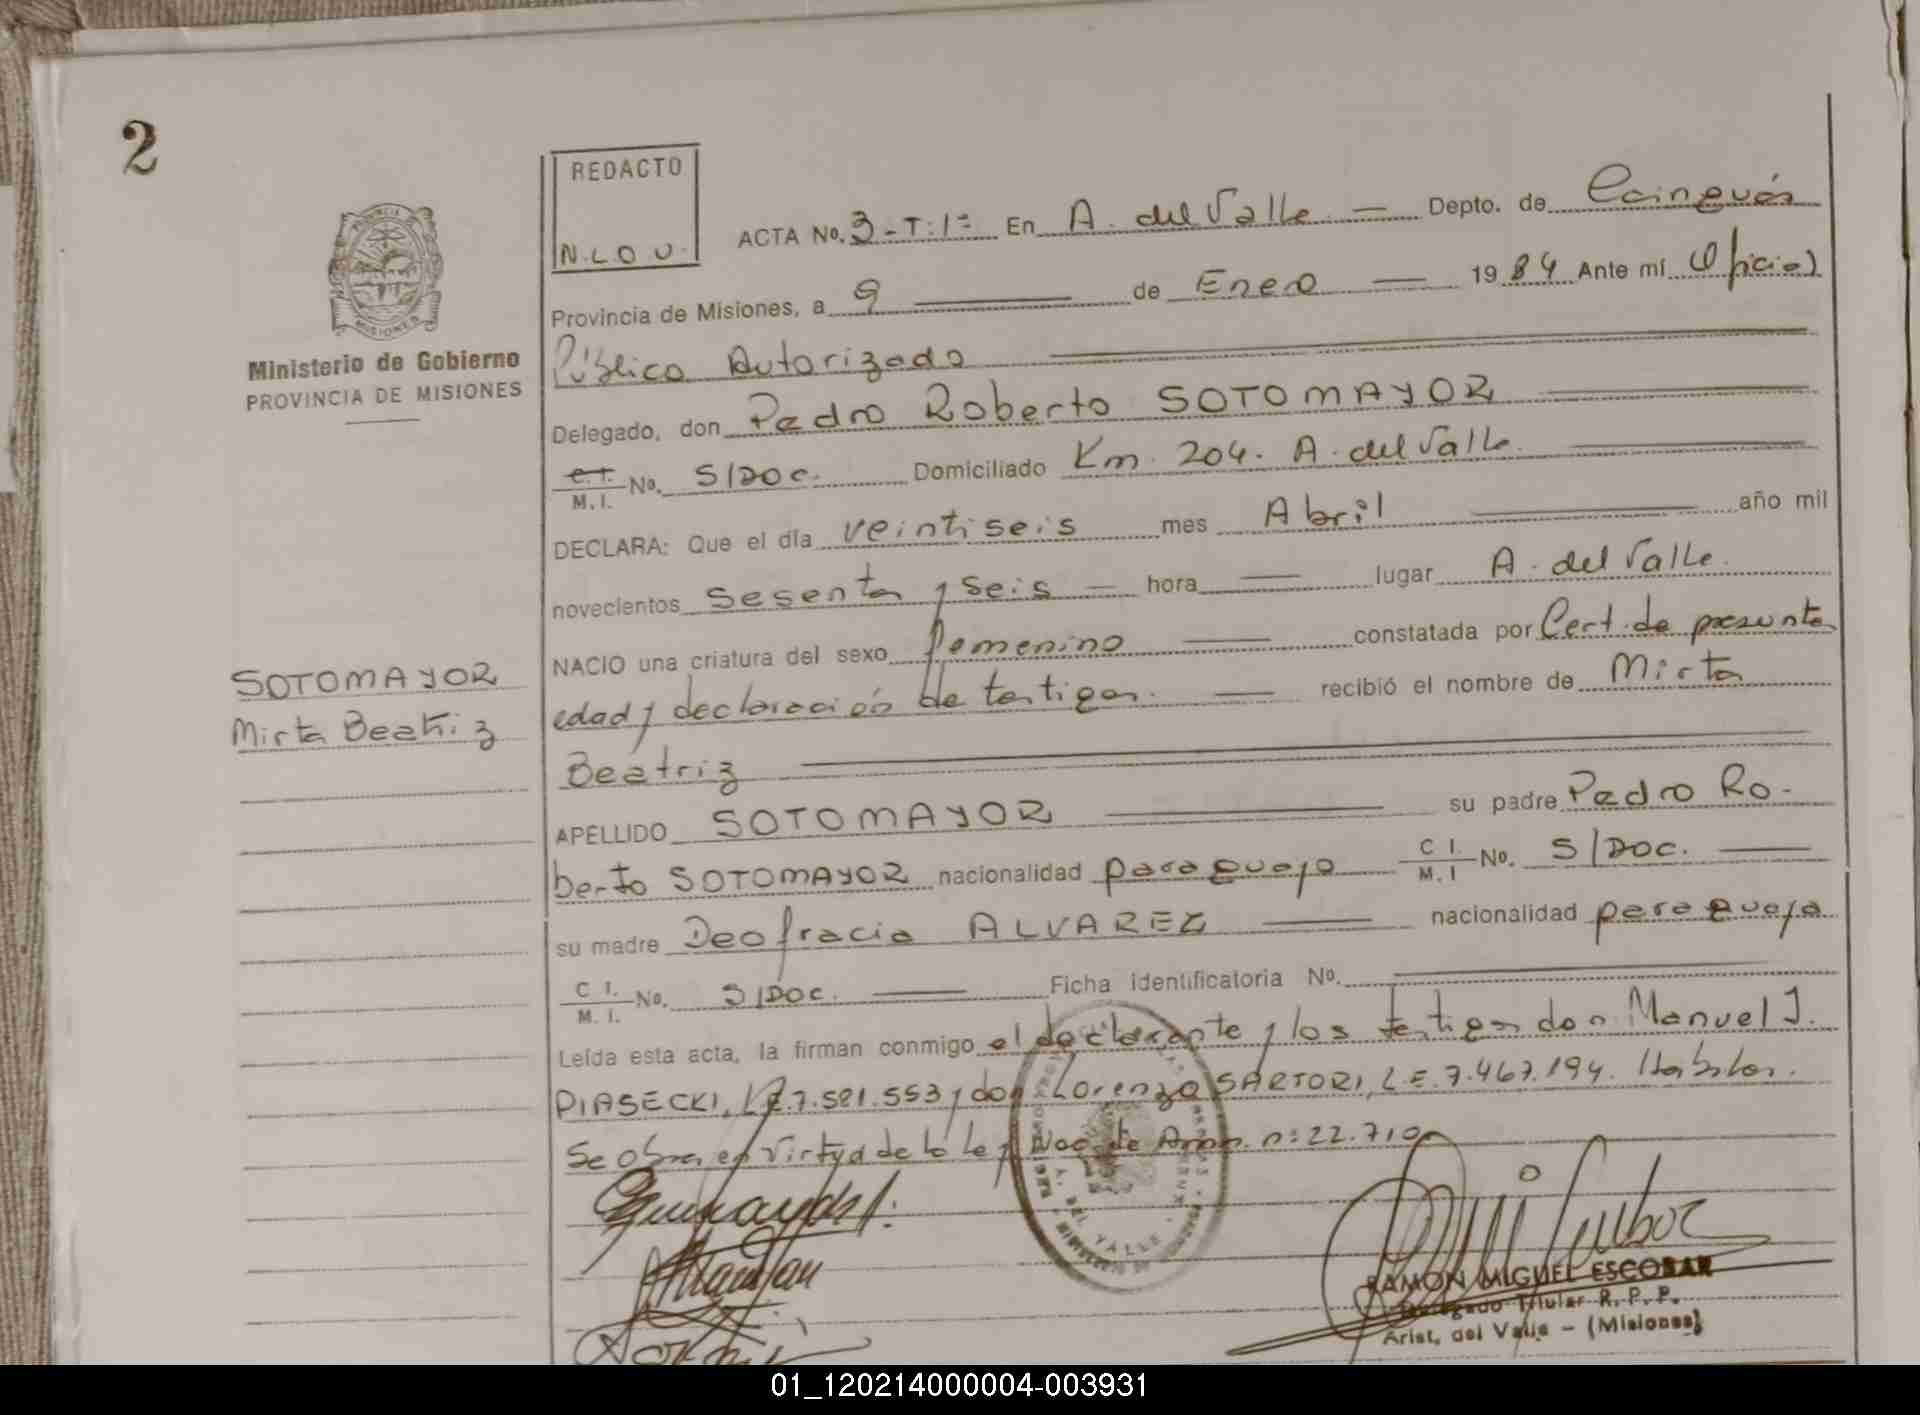 2
REDACTO
N.L.O.U.
PROVINCIA DE
MISIONES
Ministerio de Gobierno
PROVINCIA DE MISIONES
ACTA No. 3-T:1º En A. del Valle — Depto. de Cainguás
Provincia de Misiones, a 9 — de Enero — 1984 Ante mí Oficial
Público Autorizado
Delegado, don Pedro Roberto SOTOMAYOR
C.I. M.I. No. S/DOC. Domiciliado Km. 204. A. del Valle.
DECLARA: Que el día veintiseis mes Abril — año mil
novecientos sesenta y seis — hora — lugar A. del Valle.
NACIO una criatura del sexo femenino — constatada por Cert. de presunta
edad y declaración de testigos. — recibió el nombre de Mirta
Beatriz
APELLIDO SOTOMAYOR — su padre Pedro Ro-
berto SOTOMAYOR nacionalidad paraguayo C I. M. I No. S/DOC. —
su madre Deofracia ALVAREZ — nacionalidad paraguaya
C I. M. I. No. S/DOC. — Ficha identificatoria No. —
Leída esta acta, la firman conmigo el declarante y los testigos don Manuel J.
PIASECKI, L.E. 7.581.553 y don Lorenzo SARTORI, L.E. 7.467.194. Hábiles.
Se obra en virtud de la Ley Nac. de Amn. nº 22.710
SOTOMAYOR
Mirta Beatriz
A. DEL VALLE
RAMON MIGUEL ESCOBAR
Delegado Titular R. P. P.
Arist. del Valle - (Misiones)
01_120214000004-003931